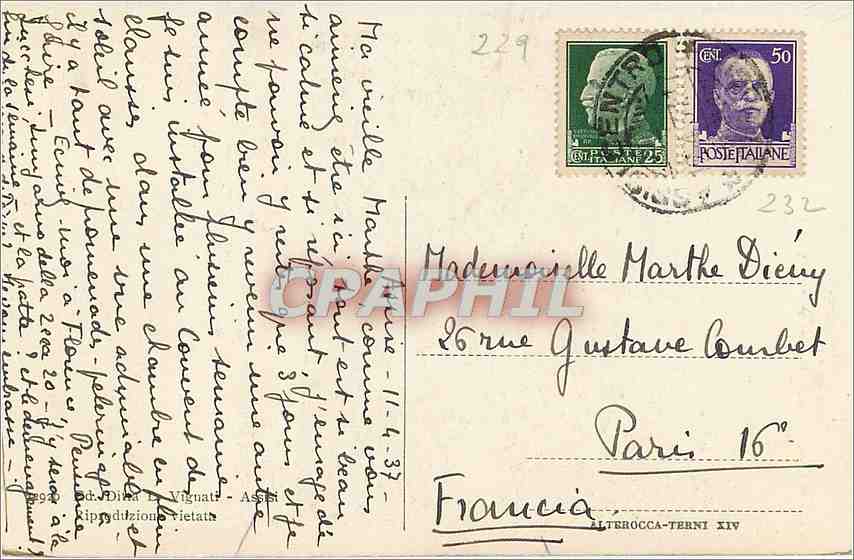 Assise - 11-4-37-
Ma vieille Marthe comme vous
aimeriez être ici, tout est si beau
si calme et si reposant, j'enrage de
ne pouvoir y rester que 3 jours et je
compte bien y revenir une autre
année pour plusieurs semaines
Je suis installée au Couvent de
Clarisses dans une chambre en plein
soleil avec une vue admirable et
il y a tant de promenades - pelerinages à
faire - Ecrivez moi à Florence Pensione
Lungarno della Zecca 20 - j'y serai à la
fin de la semaine et la patte? et le déménagement?
Je vous embrasse -
229
CENT. POSTE ITALIANE 25
CENT. 50
POSTE ITALIANE
CENTRO
232
Mademoiselle Marthe Diény
26 rue Gustave Courbet
Paris 16e
Francia
Ed. Ditta L. Vignati - Assisi
Riproduzione vietata
ALTEROCCA-TERNI XIV
CPAPHIL